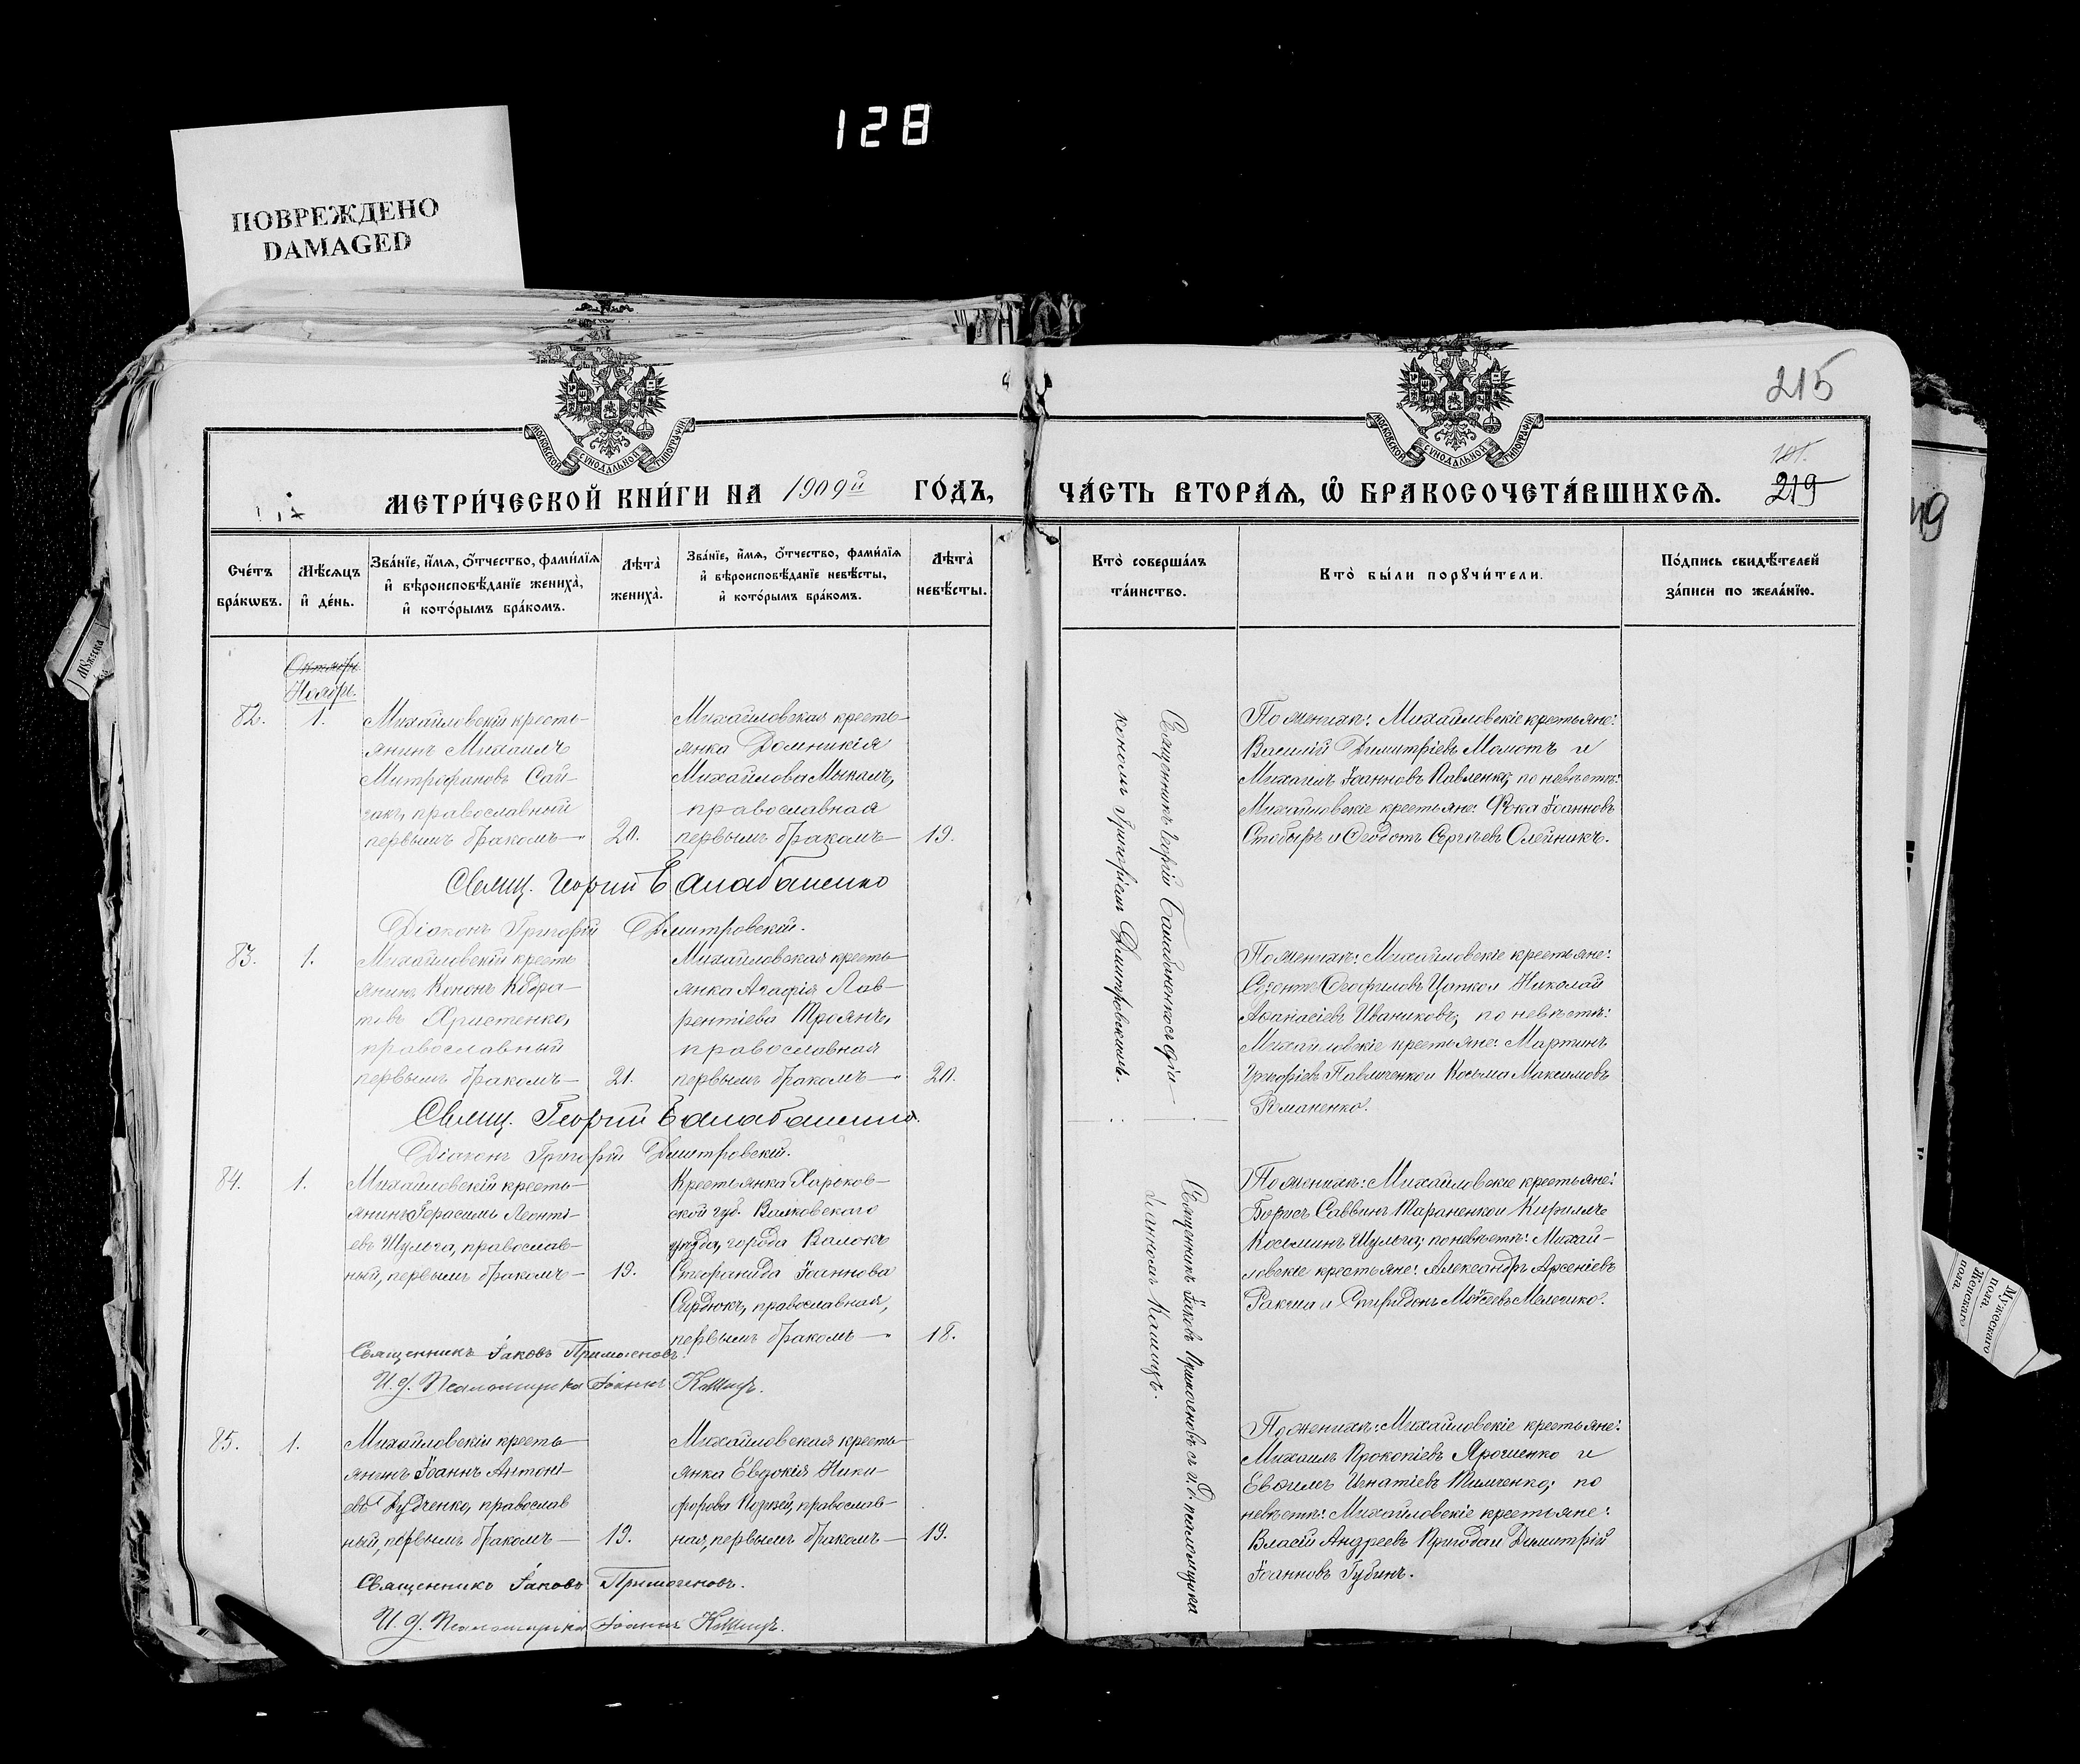 128
ПОВРЕЖДЕНО
DAMAGED
215
МОСКОВСКОЙ СѴНОДАЛЬНОЙ ТИПОГРАФІИ
МОСКОВСКОЙ СѴНОДАЛЬНОЙ ТИПОГРАФІИ
МЕТРИ́ЧЕСКОЙ КНИ́ГИ НА 1909й ГО́ДЪ,
ЧА́СТЬ ВТОРА́Я, Ѡ БРАКОСОЧЕТА́ВШИХСЯ.
219
Сче́тъ бра́кѡвъ.
Мѣ́сяцъ и҆ де́нь.
Зва́нїе, и҆́мя, ѻ҆́тчество, фами́лїя
и҆ вѣроисповѣ́данїе жениха̀,
и҆ кото́рымъ бра́комъ.
Лѣта̀ жениха̀.
Зва́нїе, и҆́мя, ѻ҆́тчество, фами́лїя
и҆ вѣроисповѣ́данїе невѣ́сты,
и҆ кото́рымъ бра́комъ.
Лѣта̀ невѣ́сты.
Кто̀ соверша́лъ
та́инство.
Кто̀ бы́ли порꙋчи́тели.
По́дпись свидѣ́телей
за́писи по жела́нїю.
Октябрь
Ноябрь
82.
1.
Михайловскій кресть-
янинъ Михаилъ
Митрофановъ Сай-
гакъ, православный
первымъ бракомъ—
20.
Михайловская кресть-
янка Домникія
Михайлова Мыкалъ,
православная
первымъ бракомъ—
19.
Священникъ Георгій Балабаненко съ діа-
кономъ Григоріемъ Дмитровскимъ.
По женихѣ: Михайловскіе крестьяне:
Василій Димитріевъ Момотъ и
Михаилъ Іоанновъ Павленко; по невѣстѣ:
Михайловскіе крестьяне: Ѳока Іоанновъ
Стобыръ и Ѳеодотъ Сергѣевъ Олейникъ.
Свящ. Георгій Балабаненко
Діаконъ Григорій Дмитровскій.
83.
1.
Михайловскій кресть-
янинъ Кононъ Кодра-
товъ Христенко,
православный
первымъ бракомъ—
21.
Михайловская кресть-
янка Агафія Лав-
рентіева Троянъ,
православная
первымъ бракомъ—
20.
По женихѣ: Михайловскіе крестьяне:
Ѳеофиловъ Цапко и Николай
Аѳанасіевъ Иваниковъ; по невѣстѣ:
Михайловскіе крестьяне: Мартинъ
Григоріевъ Павличенко и Косьма Максимовъ
Романенко.
Свящ. Георгій Балабаненко.
Діаконъ Григорій Дмитровскій.
84.
1.
Михайловскій кресть-
янинъ Герасимъ Леонті-
евъ Шульга, православ-
ный, первымъ бракомъ—
19.
Крестьянка Харьков-
ской губ. Валковскаго
уѣзда, города Валокъ
Стефанида Іоаннова
Сердюкъ, православная,
первымъ бракомъ—
18.
Священникъ Іаковъ Примогеновъ съ и. д. псаломщика
Іоанномъ Кашицъ.
По женихѣ: Михайловскіе крестьяне:
Борисъ Саввинъ Тараненко и Кириллъ
Косьминъ Шульга; по невѣстѣ: Михай-
ловскіе крестьяне: Александръ Арсеніевъ
Ракша и Спиридонъ Моѵсеевъ Мелешко.
Священникъ Іаковъ Примогеновъ.
И. д. Псаломщика Іоаннъ Кашицъ.
85.
1.
Михайловскій кресть-
янинъ Іоаннъ Антоні-
евъ Дудченко, православ
ный, первымъ бракомъ—
19.
Михайловская кресть-
янка Евдокія Ники-
форова Козней, православ-
ная, первымъ бракомъ—
19.
По женихѣ: Михайловскіе крестьяне:
Михаилъ Прокопіевъ Ярошенко и
Евѳимъ Игнатіевъ Тимченко; по
невѣстѣ: Михайловскіе крестьяне:
Власій Андреевъ Пригода и Димитрій
Іоанновъ Губинъ.
Священникъ Іаковъ Примогеновъ.
И. д. Псаломщика Іоаннъ Кашицъ.
Мужескаго
пола.
Женскаго
пола.